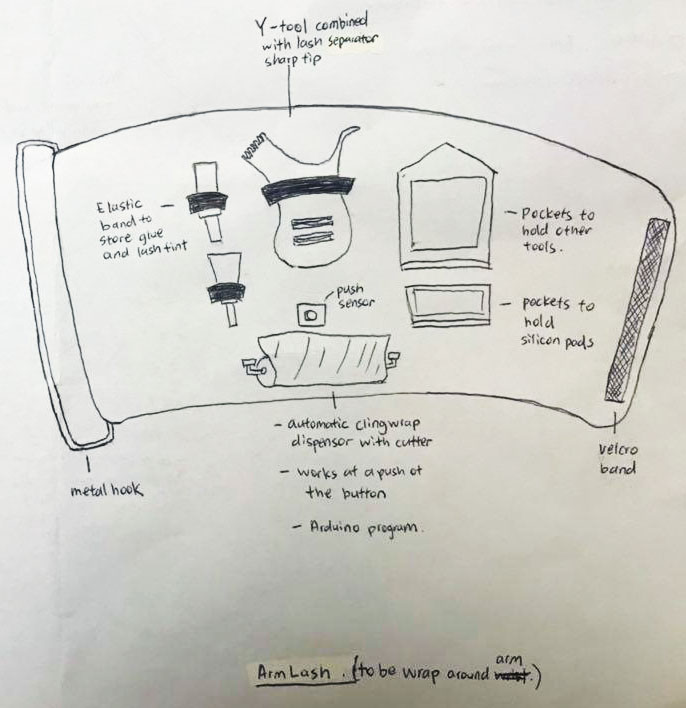 Y-tool combined
with lash separator
sharp tip
Elastic
band to
store glue
and lash tint
push
sensor
- Pockets to
hold other
tools.
- pockets to
hold
silicon pods
- automatic clingwrap
dispensor with cutter
- works at a push of
the button
- Arduino program.
metal hook
velcro
band
ArmLash. (to be wrap around wrist arm.)